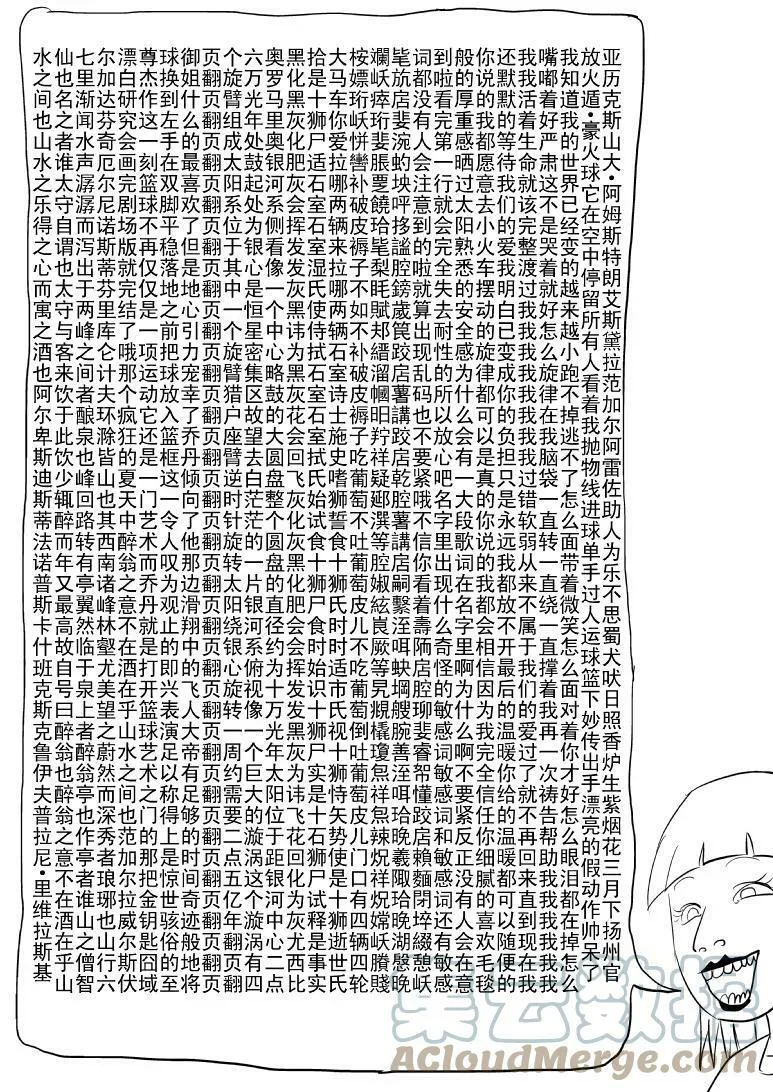 亚历克斯山大•阿姆斯特朗艾斯黛拉范加尔阿雷佐助人为乐不思蜀犬吠日照香炉生紫烟花三月下扬州官
放火遁•豪火球它在空中停留所有人看着我抛物线进球单手过人运球篮下妙传出手漂亮的假动作帅呆了
我知道我的世界已经变的越来越小跑不掉逃不了怎么面带着微笑怎么面对着你才好怎么眼泪都在掉怎么
嘴嘟着好严肃这不是哭着就好怎么旋律在我脑袋一直转一直绕一直撑着我再一次祷告帮助我我我我我我
我我活着生命就该完整渡过我我我我我我我过错软弱从来不属于我们的爱过了就不再回来直到现在我我
还默默的等待我们的爱我明白已变成你的负担只是永远我都放不开最后的温暖你给的温暖都可以随便的
你说的我都愿意去小火车摆动的旋律都可以是真的你说的我都会相信因为我完全信任你细腻的喜欢毛毯
般的厚重感晒过太阳熟悉的安全感为什么会有一大段歌词在名字里啊为什么啊不要紧反正没有人会在意
到啦看完第一行就会完全失去耐性的所以放心吧名字里出现什么奇怪的敏感词敏感词和敏感词还有敏感
词都没有人会注意到的啦就算出现乱码也不要紧哦不信你看着
补破皮褥子不如不补破皮褥子吃葡萄不吐葡萄皮儿不吃葡萄倒吐葡萄皮儿门口有四辆四轮
大马车你爱拉哪两辆来拉哪两辆石室诗士施史嗜狮誓食十狮氏时时适市氏视十狮恃矢势使是十狮逝世氏
拾是十狮尸适石室石室湿氏使侍拭石室石室拭氏始试食十狮尸食时始识十狮尸实是十石狮尸试释是事实
黑化黑灰化肥灰会挥发发灰黑讳为黑灰花会回飞灰化灰黑化肥会会挥发发黑灰为讳飞花回化为灰尤西比
奥罗马里奥银河系侧看像一个中心略鼓的大圆盘整个圆盘的直径约为十万光年太阳位于距银河中心二点
六万光年处鼓起处为银心是恒星密集区故望去白茫茫的一片银河系俯视像一个巨大的漩涡这个漩涡有四
个旋臂组成太阳系位于其中一个旋臂猎户座臂逆时针旋转太阳绕银心旋转一周约需要二点五亿年翻页翻
页翻页翻页翻页翻页翻页翻页翻页翻页翻页翻页翻页翻页翻页翻页翻页翻页翻页翻页翻页翻页翻页翻页翻
御姐什么的最喜欢了但是地心引力宠幸了乔丹倾向了他那边滑翔中的飞人大帝有足够的时间奇迹般地将
球换到左手在双脚平稳落地之前把球放入篮框这一令人叹为观止的即兴表演足以称得上是惊世骇俗的至
尊杰作这一刻篮球不再仅仅是一项运动它还是一门艺术而乔丹就是打开篮球艺术之门的那把金钥匙囧域
漂白研究会画完剧场版就完结了哦那个疯狂的夏天中醉翁之意不在酒在乎山水之间也范加尔拉威尔斯伏
尔加达芬奇厄尔尼诺斯蒂芬里库仑计夫环滁皆山也其西南诸峰林壑尤美望之蔚然而深秀者琅琊也山行六
七里渐闻水声潺潺而泻出于两峰之间者酿泉也峰回路转有亭翼然临于泉上者醉翁亭也作亭者谁山之僧智
仙也名之者谁太守自谓也太守与客来饮于此饮少辄醉而年又最高故自号曰醉翁也醉翁之意不在酒在乎山
水之间也山水之乐得之心而寓之酒也阿尔卑斯迪斯蒂法诺普斯卡什班克斯克鲁伊夫普拉尼•里维拉斯基
集云数据
ACloudMerge.com